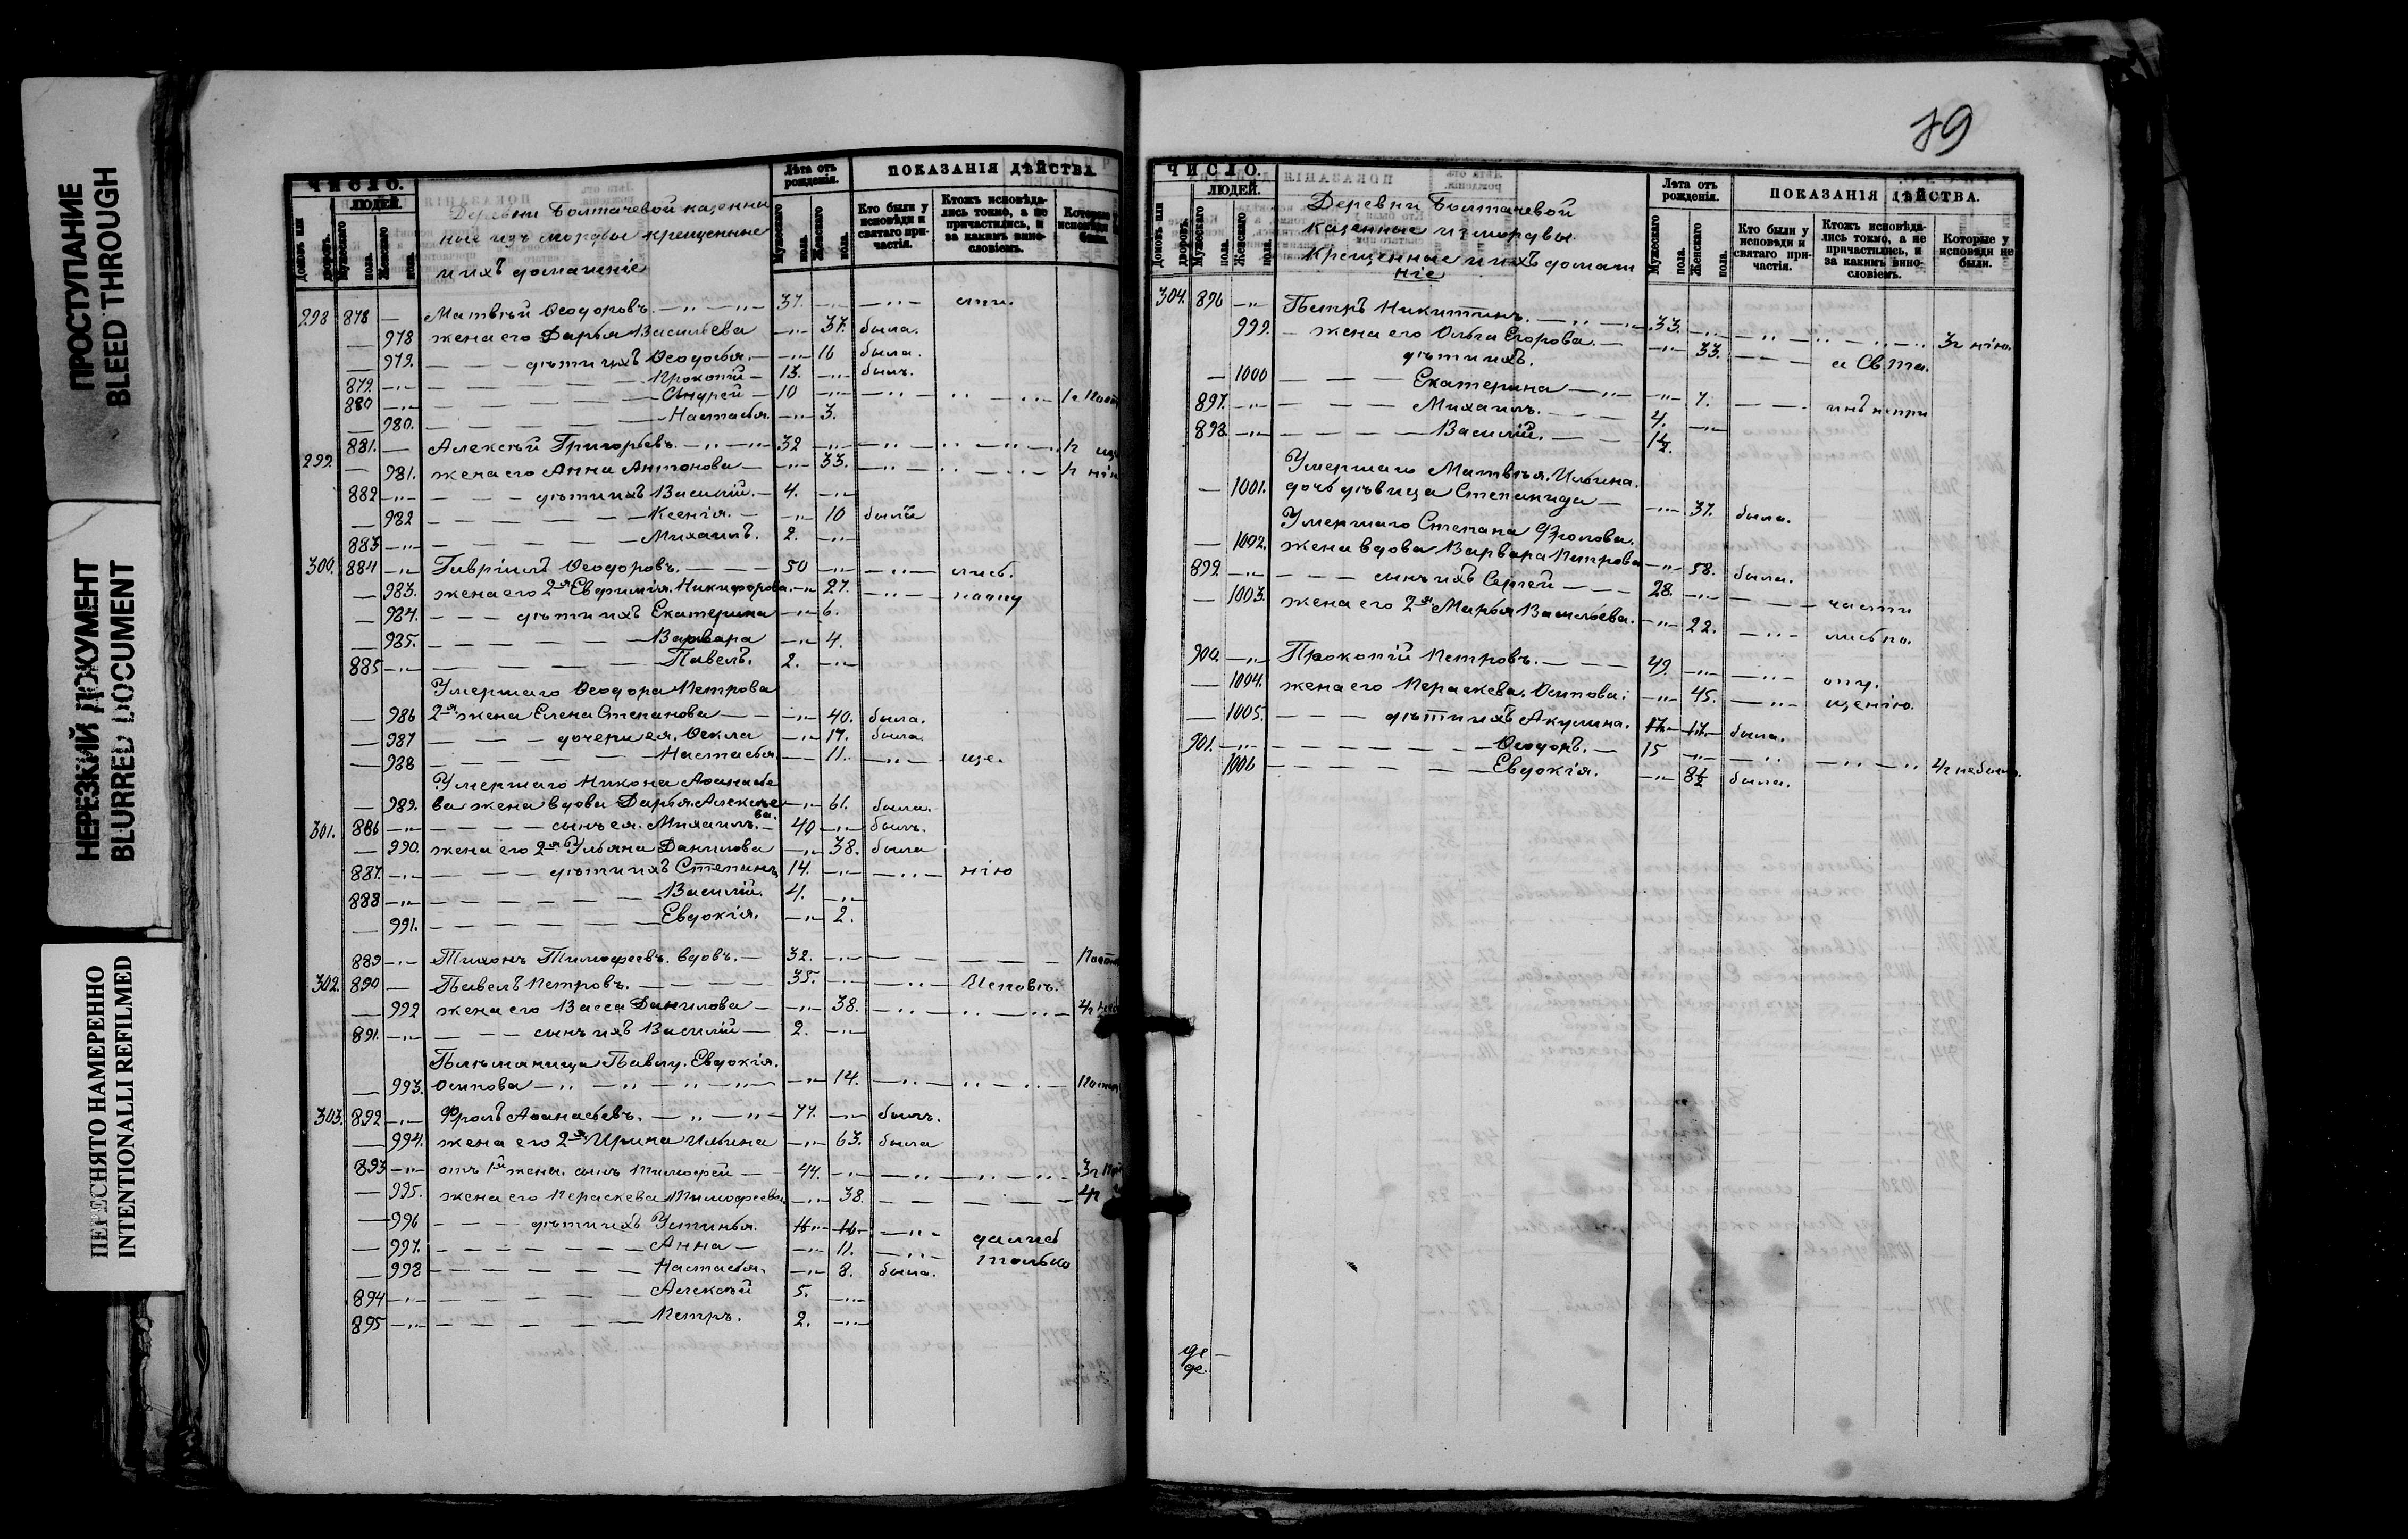 ПРОСТУПАНИЕ
BLEED THROUGH
НЕРЕЗКИЙ ДОКУМЕНТ
BLURRED DOCUMENT
ПЕРЕСНЯТО НАМЕРЕННО
INTENTIONALLI REFILMED
ЧИСЛО.
ЛЮДЕЙ.
Домовъ или дворовъ.
Мужескаго пола.
Женскаго пола.
Деревни Болтачевой казенны
ные изъ мордвы крещенные
и ихъ домашніе
Лѣта отъ рожденія.
Мужескаго пола.
Женскаго пола.
ПОКАЗАНІЯ ДѢЙСТВА
Кто были у исповѣди и святаго причастія.
Ктожъ исповѣдались токмо, а не причастились, и за какимъ винословіемъ.
Которые исповѣди были.
298 878 — Матвѣй Ѳеодоровъ. 37.
— 978 жена его Дарья Васильева 37. была.
— 979. дѣти ихъ Ѳеодосья. 16 была.
879. Прокопій 13. былъ.
880 Андрей 10
— 980. Настасья. 3.
299. 881. — Алексѣй Григорьевъ. 32
— 981. жена его Анна Антонова 33.
882 дѣти ихъ Василій. 4.
— 982 Ксенія. 10
883 Михаилъ. 2.
300. 884 Гавріилъ Ѳеодоровъ. 50
— 983. жена его 2я Евфимія Никифорова. 27.
— 984. дѣти ихъ Екатерина 6.
— 985. Варвара 4.
885 Павелъ. 2.
Умершаго Ѳеодора Петрова
— 986 2я жена Елена Степанова 40. была.
— 987 дочери ея. Ѳекла 17. была
— 988 Настасья. 11. ще.
Умершаго Никона Аѳанасье
— 989. ва жена вдова Дарья Алексѣе 61. была.
ва.
301. 886 сынъ ея. Михаилъ. 40 былъ.
— 990. жена его 2я Ульяна Данилова 38. была
887. дѣти ихъ Степанъ 14. нію
888 Василій. 4.
— 991. Евдокія. 2.
889 Тихонъ Тимофеевъ. вдовъ. 32.
302. 890 — Павелъ Петровъ. 35. Исповѣ.
— 992 жена его Васса Данилова 38.
891. сынъ ихъ Василій 2.
Племянница Павлу. Евдокія.
— 993. Осипова 14.
303. 892 Фролъ Аѳанасьевъ. 77. былъ.
— 994. жена его 2я Ирина Ильина 63. была
893 отъ 1й жены. сынъ Тимофей 44.
— 995. жена его Пераскева Тимофеева 38.
— 996 дѣти ихъ Устинья. 16 16 далисъ
— 997. Анна 11. только
— 998 Настасья. 8. была.
894 Алексѣй 5.
895 Петръ. 2.
79
ЧИСЛО.
ЛЮДЕЙ.
Домовъ или дворовъ.
Мужескаго пола.
Женскаго пола.
Деревни Болтачевой
казенные из мордвы
крещенные и ихъ домаш
ніе
Лѣта отъ рожденія.
Мужескаго пола.
Женскаго пола.
ПОКАЗАНІЯ ДѢЙСТВА.
Кто были у исповѣди и святаго причастія.
Ктожъ исповѣдались токмо, а не причастились, и за какимъ винословіемъ.
Которые у исповѣди не были.
304. 896 Петръ Никитинъ. 33. 3г нію.
999. жена его Ольга Егорова. 33.
дѣти ихъ.
— 1000 Екатерина 7.
897. Михаилъ. 4.
898. Василій. 1½.
Умершаго Матвѣя Ильина.
— 1001. дочь дѣвица Степанида 37. была.
Умершаго Степана Фролова.
— 1002. жена вдова Варвара Петрова 58. была.
899. сынъ ихъ Сергей 28. части
— 1003. жена его 2я Марья Васильева. 22. лисьпо.
900. Прокопій Петровъ. 49. опу.
— 1004. жена его Пераскева Осипова. 45. щенію.
— 1005. дѣти ихъ Акулина. 17 17 была.
901. Ѳеодоръ. 15 4г небылъ.
1006 Евдокія. 8½ была.